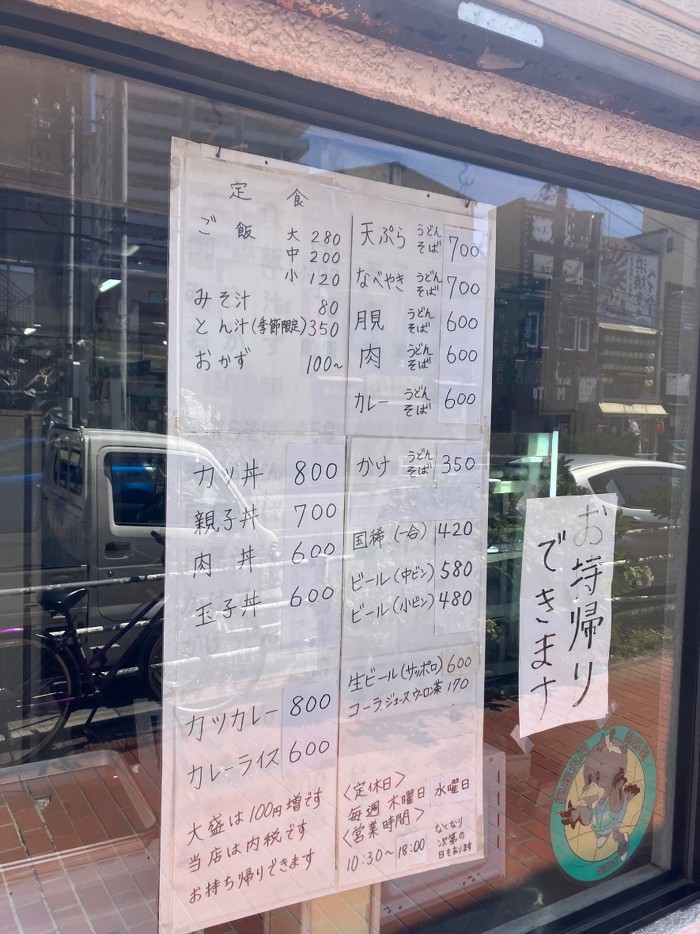 定食
ご飯 大 280
中 200
小 120
みそ汁 80
とん汁(季節限定) 350
おかず 100~
カツ丼 800
親子丼 700
肉丼 600
玉子丼 600
カツカレー 800
カレーライス 600
大盛は100円増です
当店は内税です
お持ち帰りできます
天ぷら うどん そば 700
なべやき うどん そば 700
月見 うどん そば 600
肉 うどん そば 600
カレー うどん そば 600
かけ うどん そば 350
国稀(一合) 420
ビール(中ビン) 580
ビール(小ビン) 480
生ビール(サッポロ) 600
コーラ、ジュース、ウーロン茶 170
<定休日>
毎週 木曜日 水曜日
<営業時間>
10:30~18:00
なくなり
次第の
日もあります
お持帰り
できます